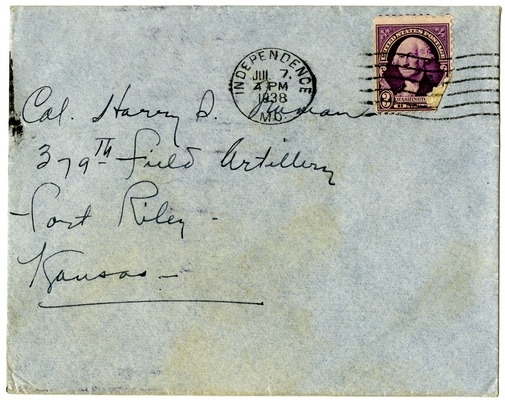 UNITED STATES POSTAGE
3
WASHINGTON
INDEPENDENCE
JUL 7
4 PM
1938
MO.
Col. Harry S. Truman
379th Field Artillery
Fort Riley -
Kansas -